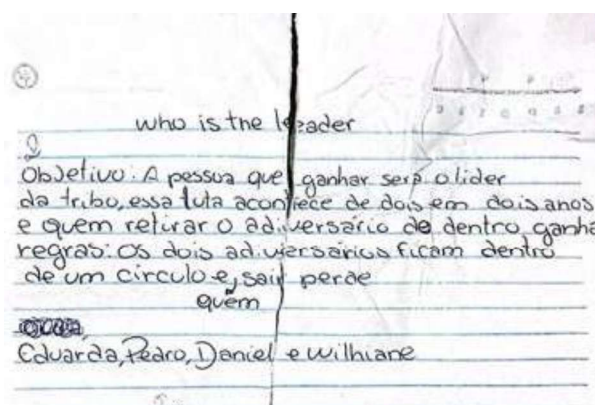 who is the leader
Objetivo: A pessoa que ganhar será o lider
da tribo, essa luta acontece de dois em dois anos
e quem retirar o adiversário de dentro ganha
regras: Os dois adiversários ficam dentro
de um circulo e, sair perde
quem
Eduarda, Pedro, Daniel e Wilhiane